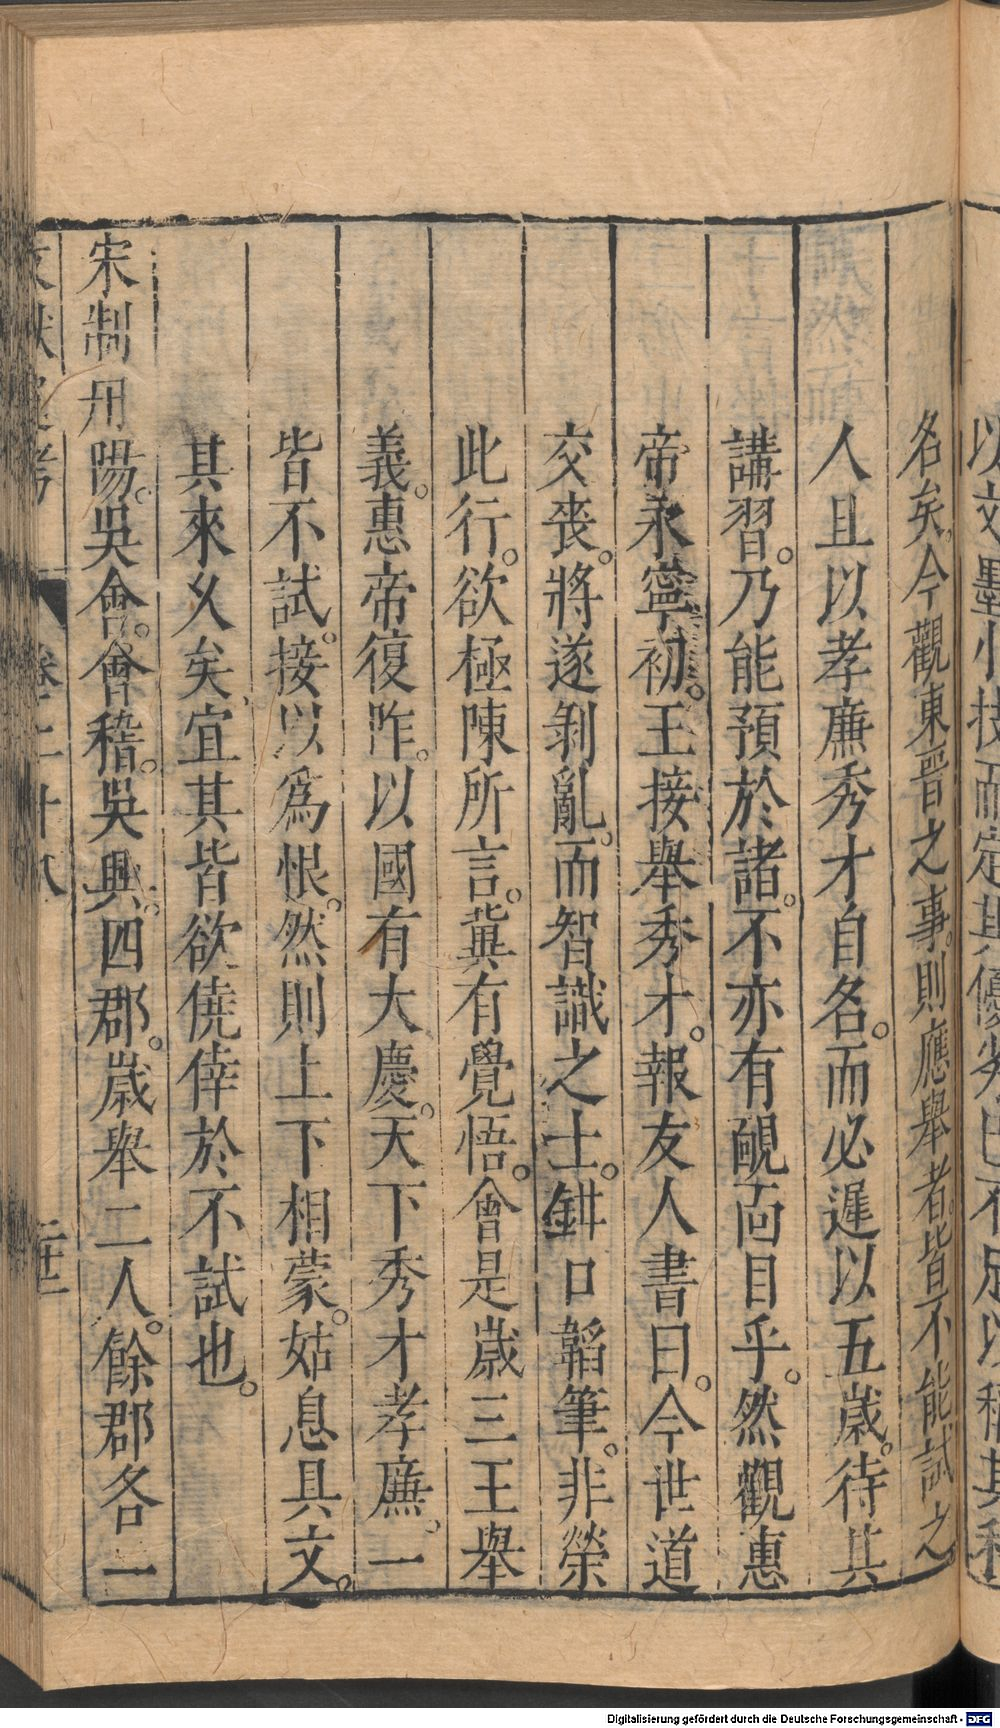 名矣。今觀東晉之事。則應舉者。皆不能試之。
人且以孝廉秀才自名。而必遲以五歲。待其
講習。乃能預於諸。不亦有靦面目乎。然觀惠
帝永寧初。王接舉秀才。報友人書曰。今世道
交喪。將遂剝亂。而智識之士。鉗口韜筆。非榮
此行。欲極陳所言。冀有覺悟。會是歲三王舉
義。惠帝復阼。以國有大慶。天下秀才孝廉。一
皆不試。接以為恨。然則上下相蒙。姑息具文。
其來乆矣。宜其皆欲僥倖於不試也。
宋制丹陽。吳會。會稽。吳興。四郡。歲舉二人。餘郡各一
卷二十八
Digitalisierung gefördert durch die Deutsche Forschungsgemeinschaft - DFG